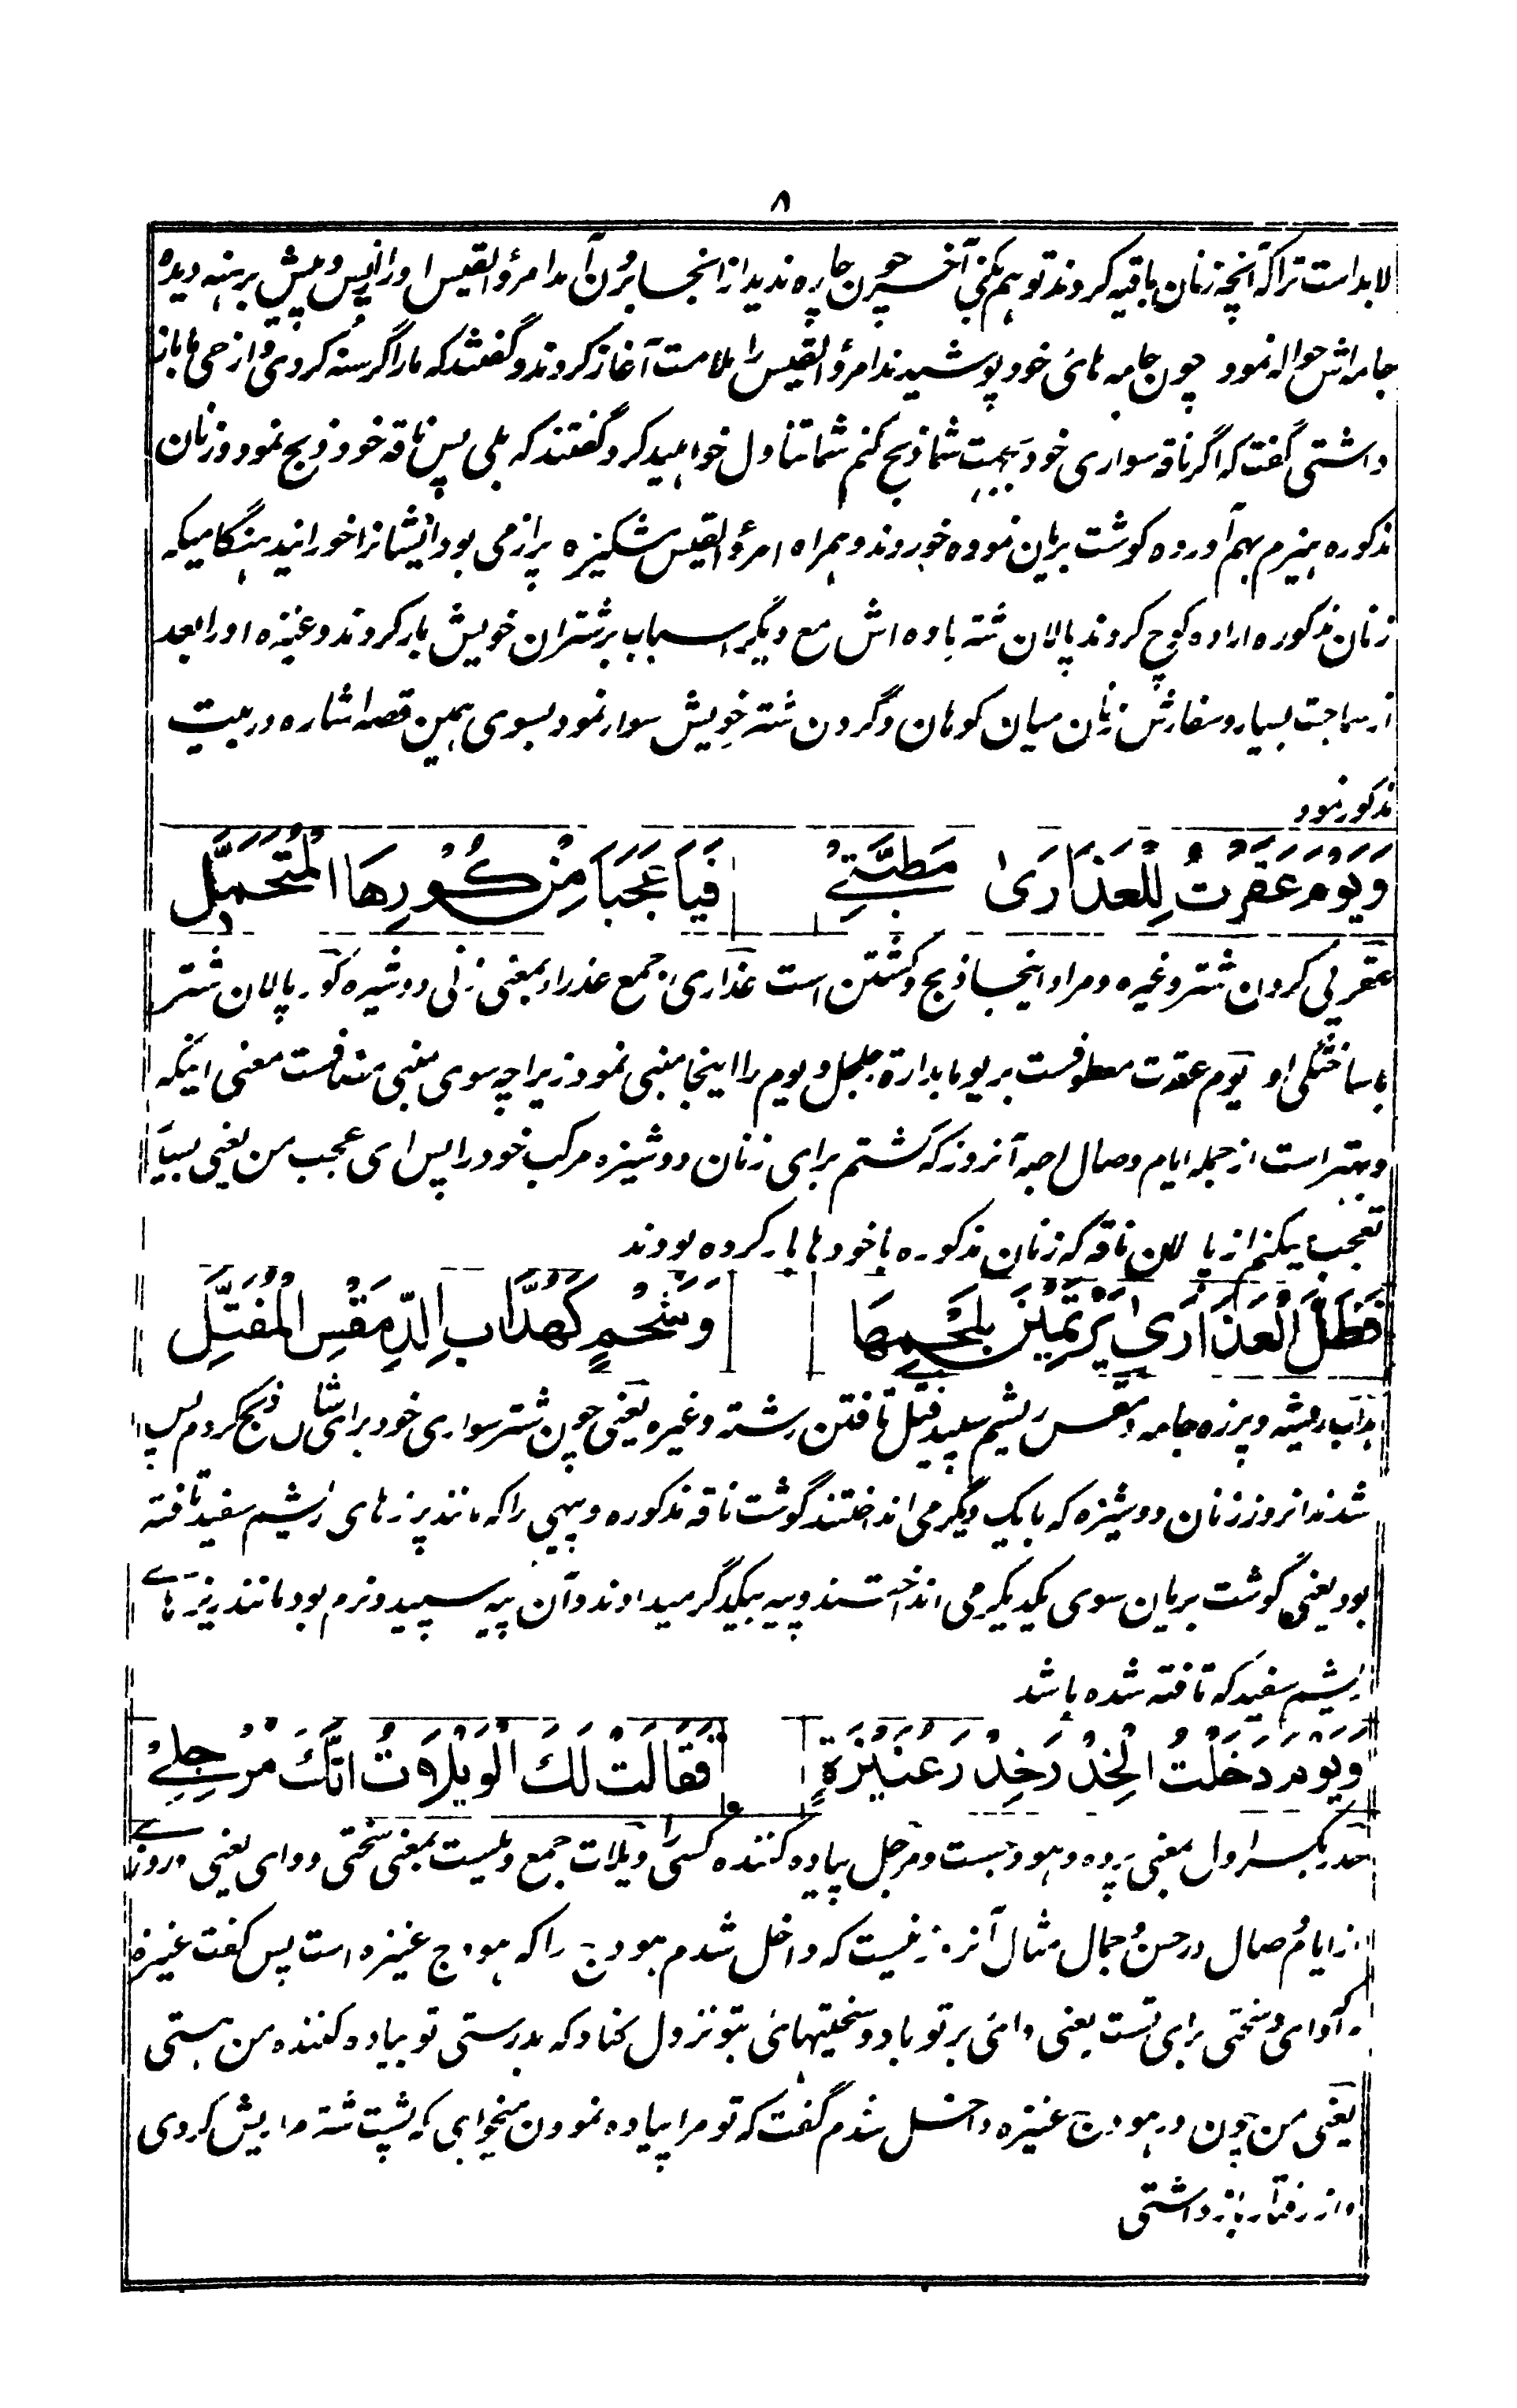 ۸
لابد است ترا که آنچه زنان باقیه کردند تو هم بکنی آخر چون چاره ندید از آنجا برون آمد امرؤ القیس او را پس و پیش برهنه دیده
جامه اش حواله نمود چون جامه های خود پوشیدند امرؤ القیس را ملامت آغاز کردند و گفتند که ما را گرسنه کردی و از حی ما باز
داشتی گفت که اگر ناقه سواری خود بجهت شما ذبح کنم شما تناول خواهید کرد گفتند که بلی پس ناقه خود ذبح نمود و زنان
مذکوره هیزم بهم آورده گوشت بریان نموده خوردند و همراه امرؤ القیس مشکیزه پر از می بود ایشانرا خورانید هنگامیکه
زنان مذکوره اراده کوچ کردند پالان شتر باده اش مع دیگر اسباب بر شتران خویش بار کردند و عنیزه او را بعد
از سماجت بسیار و سفارش زنان میان کوهان و گردن شتر خویش سوار نمود بسوی همین قصه اشاره در بیت
مذکور نمود
وَيَوْمَ عَقَرْتُ لِلْعَذَارَىٰ مَطِيَّتِيْ فَيَا عَجَبًا مِنْ كُوْرِهَا الْمُتَحَمَّلِ
عقر پی کردن شتر و غیره و مراد اینجا ذبح و کشتن است عذاری جمع عذراء بمعنی زنی دوشیزه کور پالان شتر
با ساختگی او یوم عقرت معطوفست بر یوما بدارة جلجل و یوم را اینجا مبنی نمود زیرا چه سوی مبنی مضافست معنی اینکه
و بهتر است از جمله ایام وصال احبه آنروز که کشتم برای زنان دوشیزه مرکب خود را پس ای عجب من یعنی بسیار
تعجب میکنم از پالان ناقه که زنان مذکوره با خودها بار کرده بودند
فَظَلَّ الْعَذَارَى يَرْتَمِيْنَ بِلَحْمِهَا وَشَحْمٍ كَهُدَّابِ الدِّمَقْسِ الْمُفَتَّلِ
هداب ریشه و پرزه جامه دمقس ریشم سپید فتل تافتن رشته و غیره یعنی چون شتر سواری خود برای شان ذبح کردم پس
شدند آنروز زنان دوشیزه که با یک دیگر می انداختند گوشت ناقه مذکوره و پیهی را که مانند پرزهای ریشم سفید تافته
بود یعنی گوشت بریان سوی یکدیگر می انداختند و پیه بیکدگر میدادند و آن پیه سپید و نرم بود مانند پرزهاے
ریشیم سفید که تافته شده باشد
وَيَوْمَ دَخَلْتُ الْخِدْرَ خِدْرَ عُنَيْزَةٍ فَقَالَتْ لَكَ الْوَيْلَاتُ اِنَّكَ مُرْجِلِيْ
خدر بکسر اول بمعنی پرده و هودجست و مرجل پیاده کننده کسی را ویلات جمع ویلست بمعنی سختی و وای یعنی و روزے
از ایام وصال در حسن و جمال مثال آنروز نیست که داخل شدم هودج را که هودج عنیزه است پس گفت عنیزه
که وای و سختی برای تست یعنی وای بر تو باد و سختیهای بتو نزول کناد که بدرستی تو پیاده کننده من هستی
یعنی من چون در هودج عنیزه داخل شدم گفت که تو مرا پیاده نمودن میخواهی که پشت شتر مرا ریش کردی
و از رفتار باز داشتی